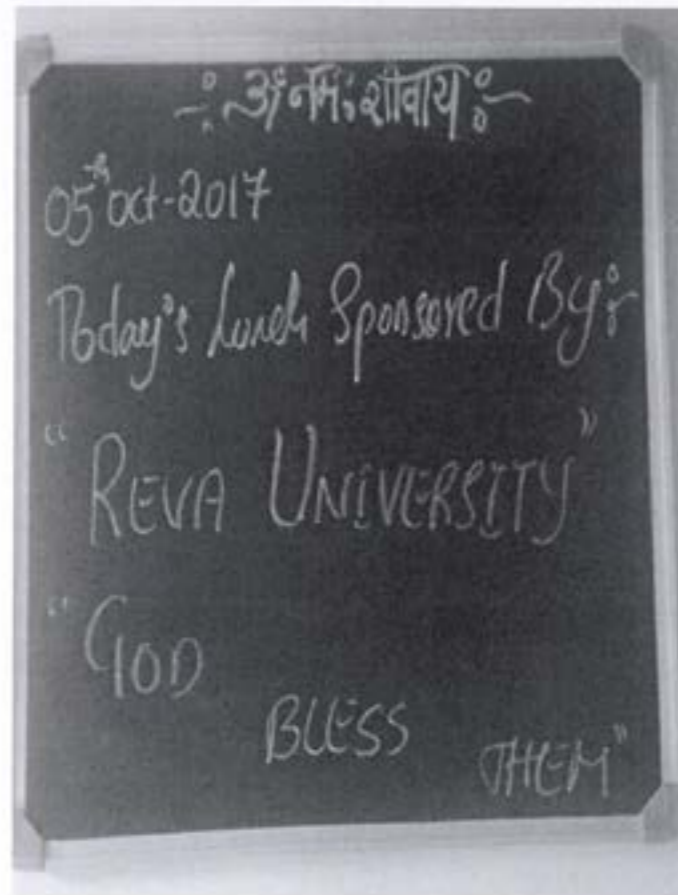 -: ॐ नमः शीवाय :-
05th Oct-2017
Today's Lunch Sponsored By:-
"REVA UNIVERSITY"
"GOD
BLESS
THEM"